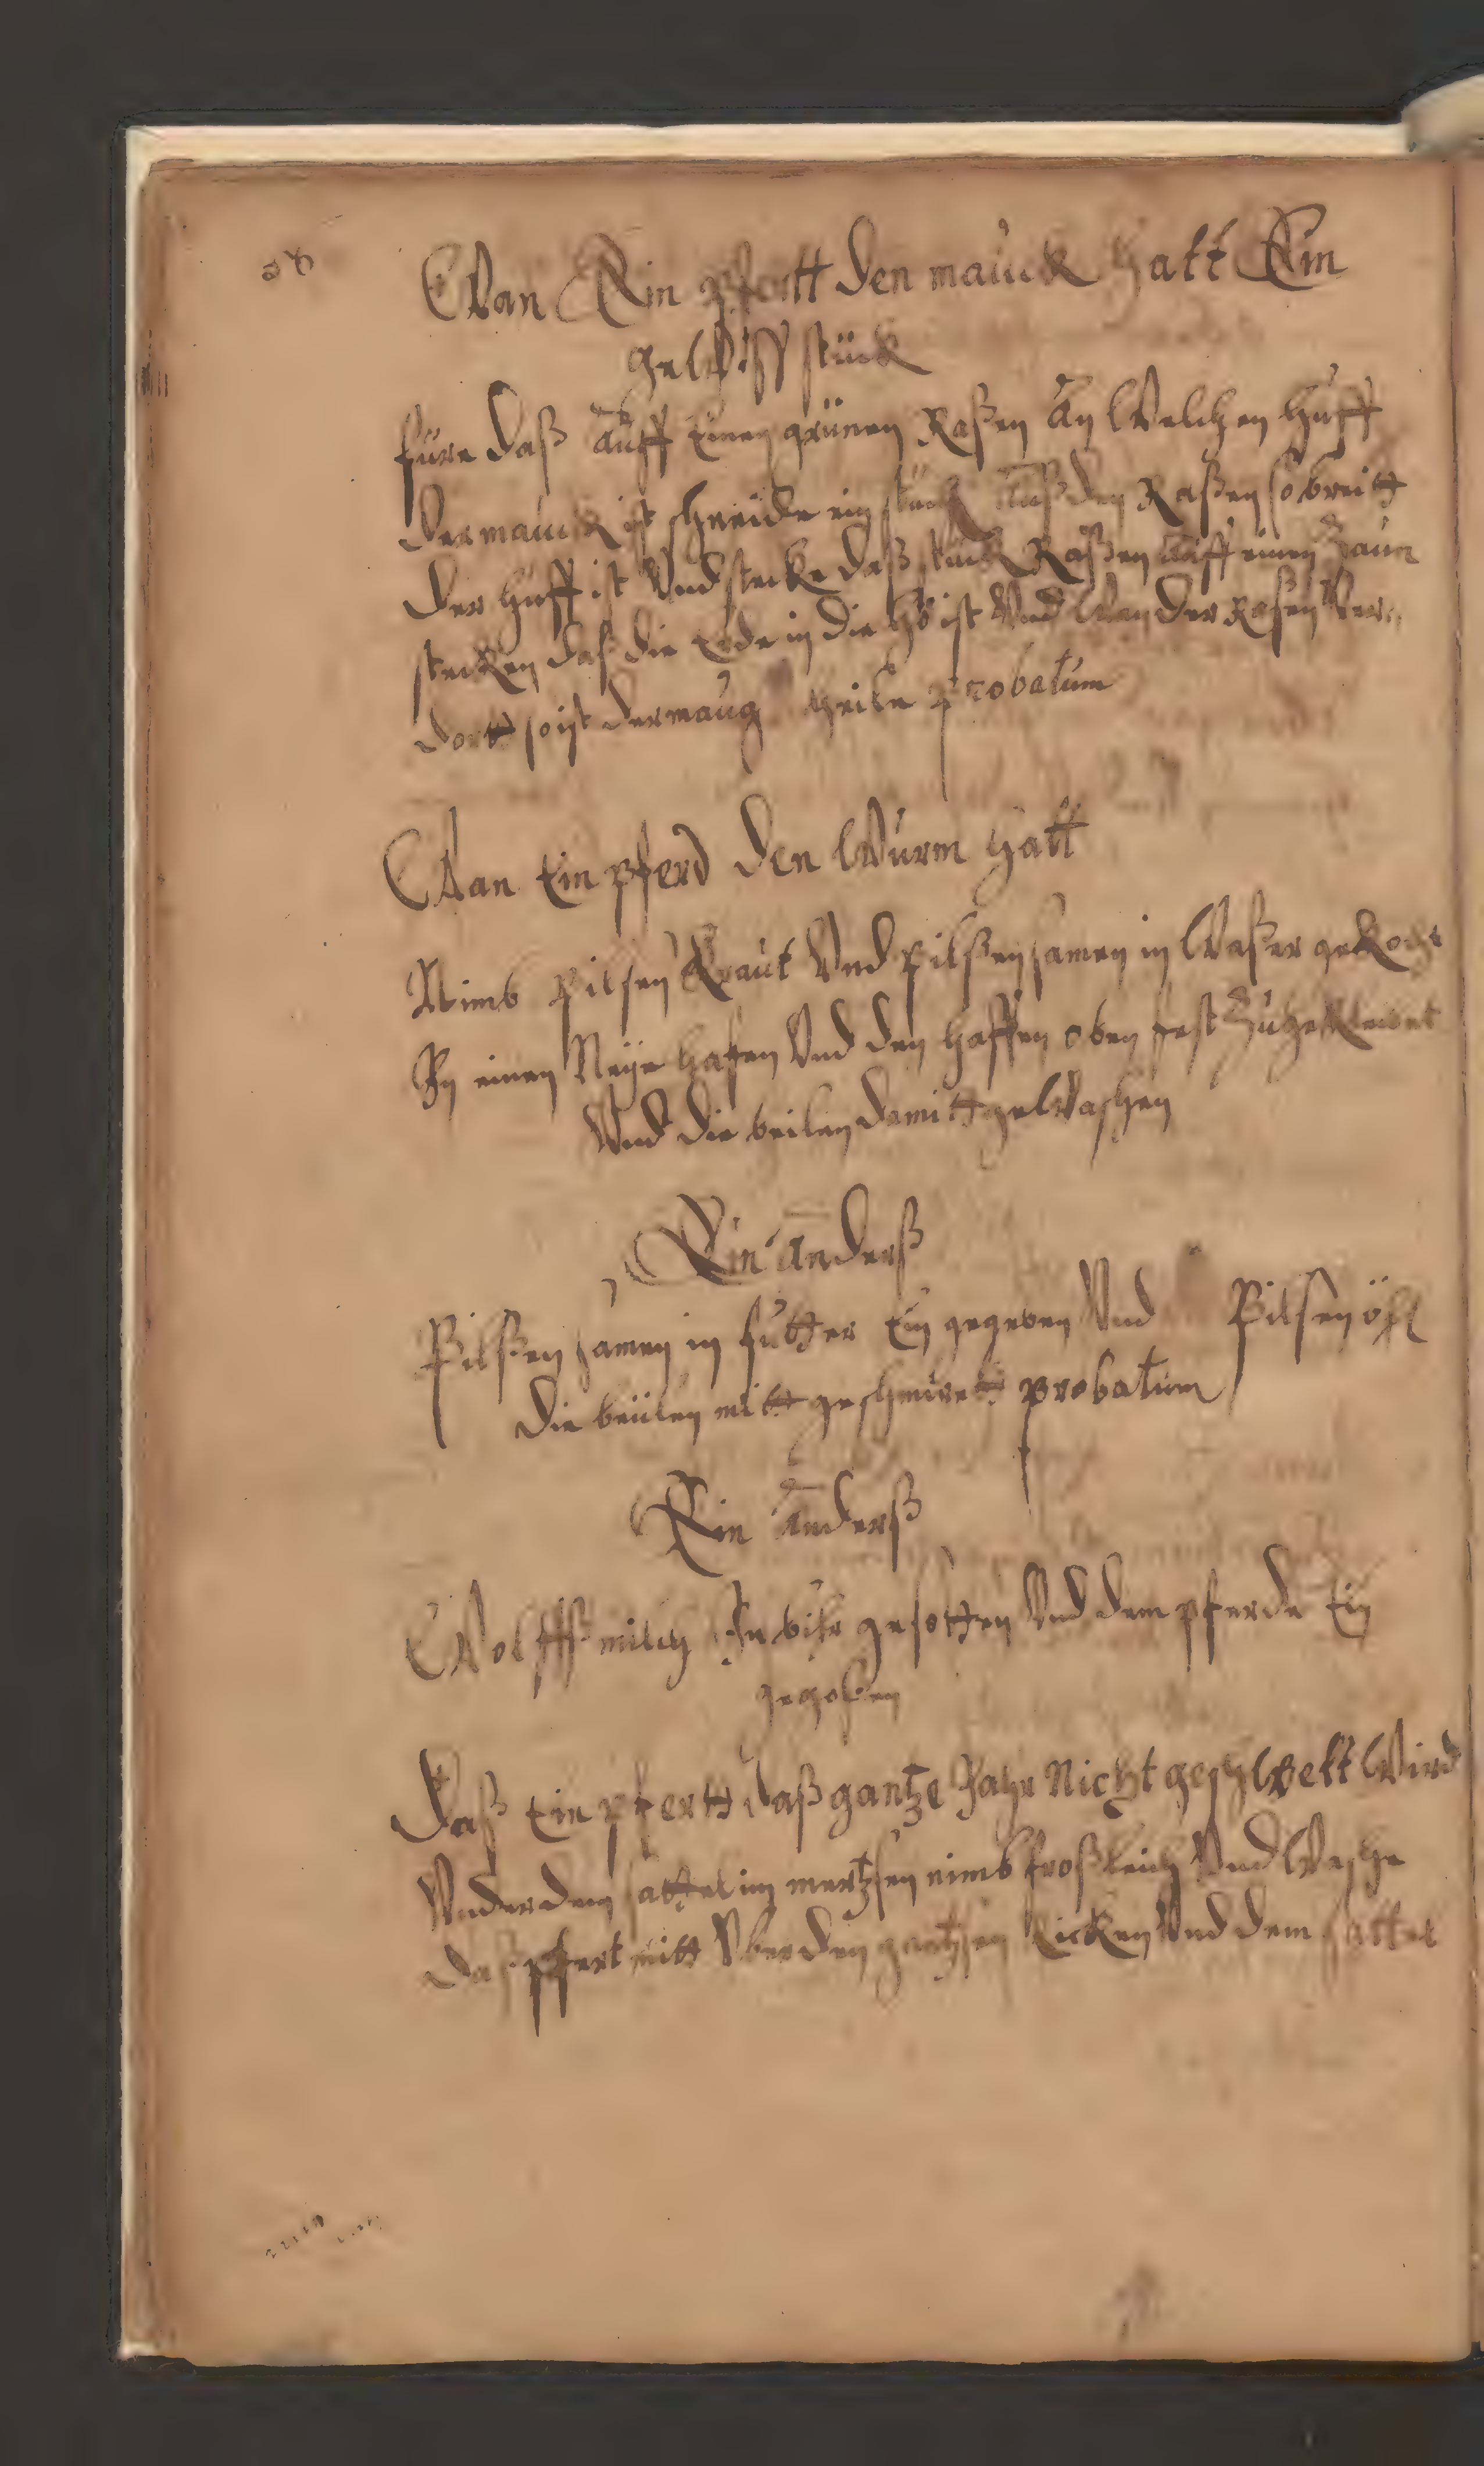 Wan Ein pfertt den mauck hatt Ein
gewiss stück
füre daß auff einen grünen Raßen an welchen huff
der mauck ist schneide ein stück auß den Raßen so breitt
der huff ist Vnd stecke daß stück Raßen auff einen Zaun
stecken daß die Erde in die hö ist Vnd wan der Raßen Ver
dortt so ist der maug heile probatum
Wan Ein pferd den Wurm hatt
Nimb pilsen Kraut Vnd pilßen samen in Waßer gekocht
In einen Neye hafen Vnd den haffen oben fest zu gekleibet
Vnd die beilen damitt gewaschen
Ein anderß
Pilßen samen in futter Ein gegeben Vnd Pilsen öhl
die beülen mitt geschmirett probatum
Ein anderß
Wolffsmilch In bihr gesotten Vnd dem pferde Ein
gegoßen
Daß Ein pfertt daß gantze Jahr Nicht geschwelt Wird
Vnder dem sattel im mertzsen nimb froßleich Vnd Wasche
daß pfert mitt Vber den gantzsen Ricken Vnd dem sattel